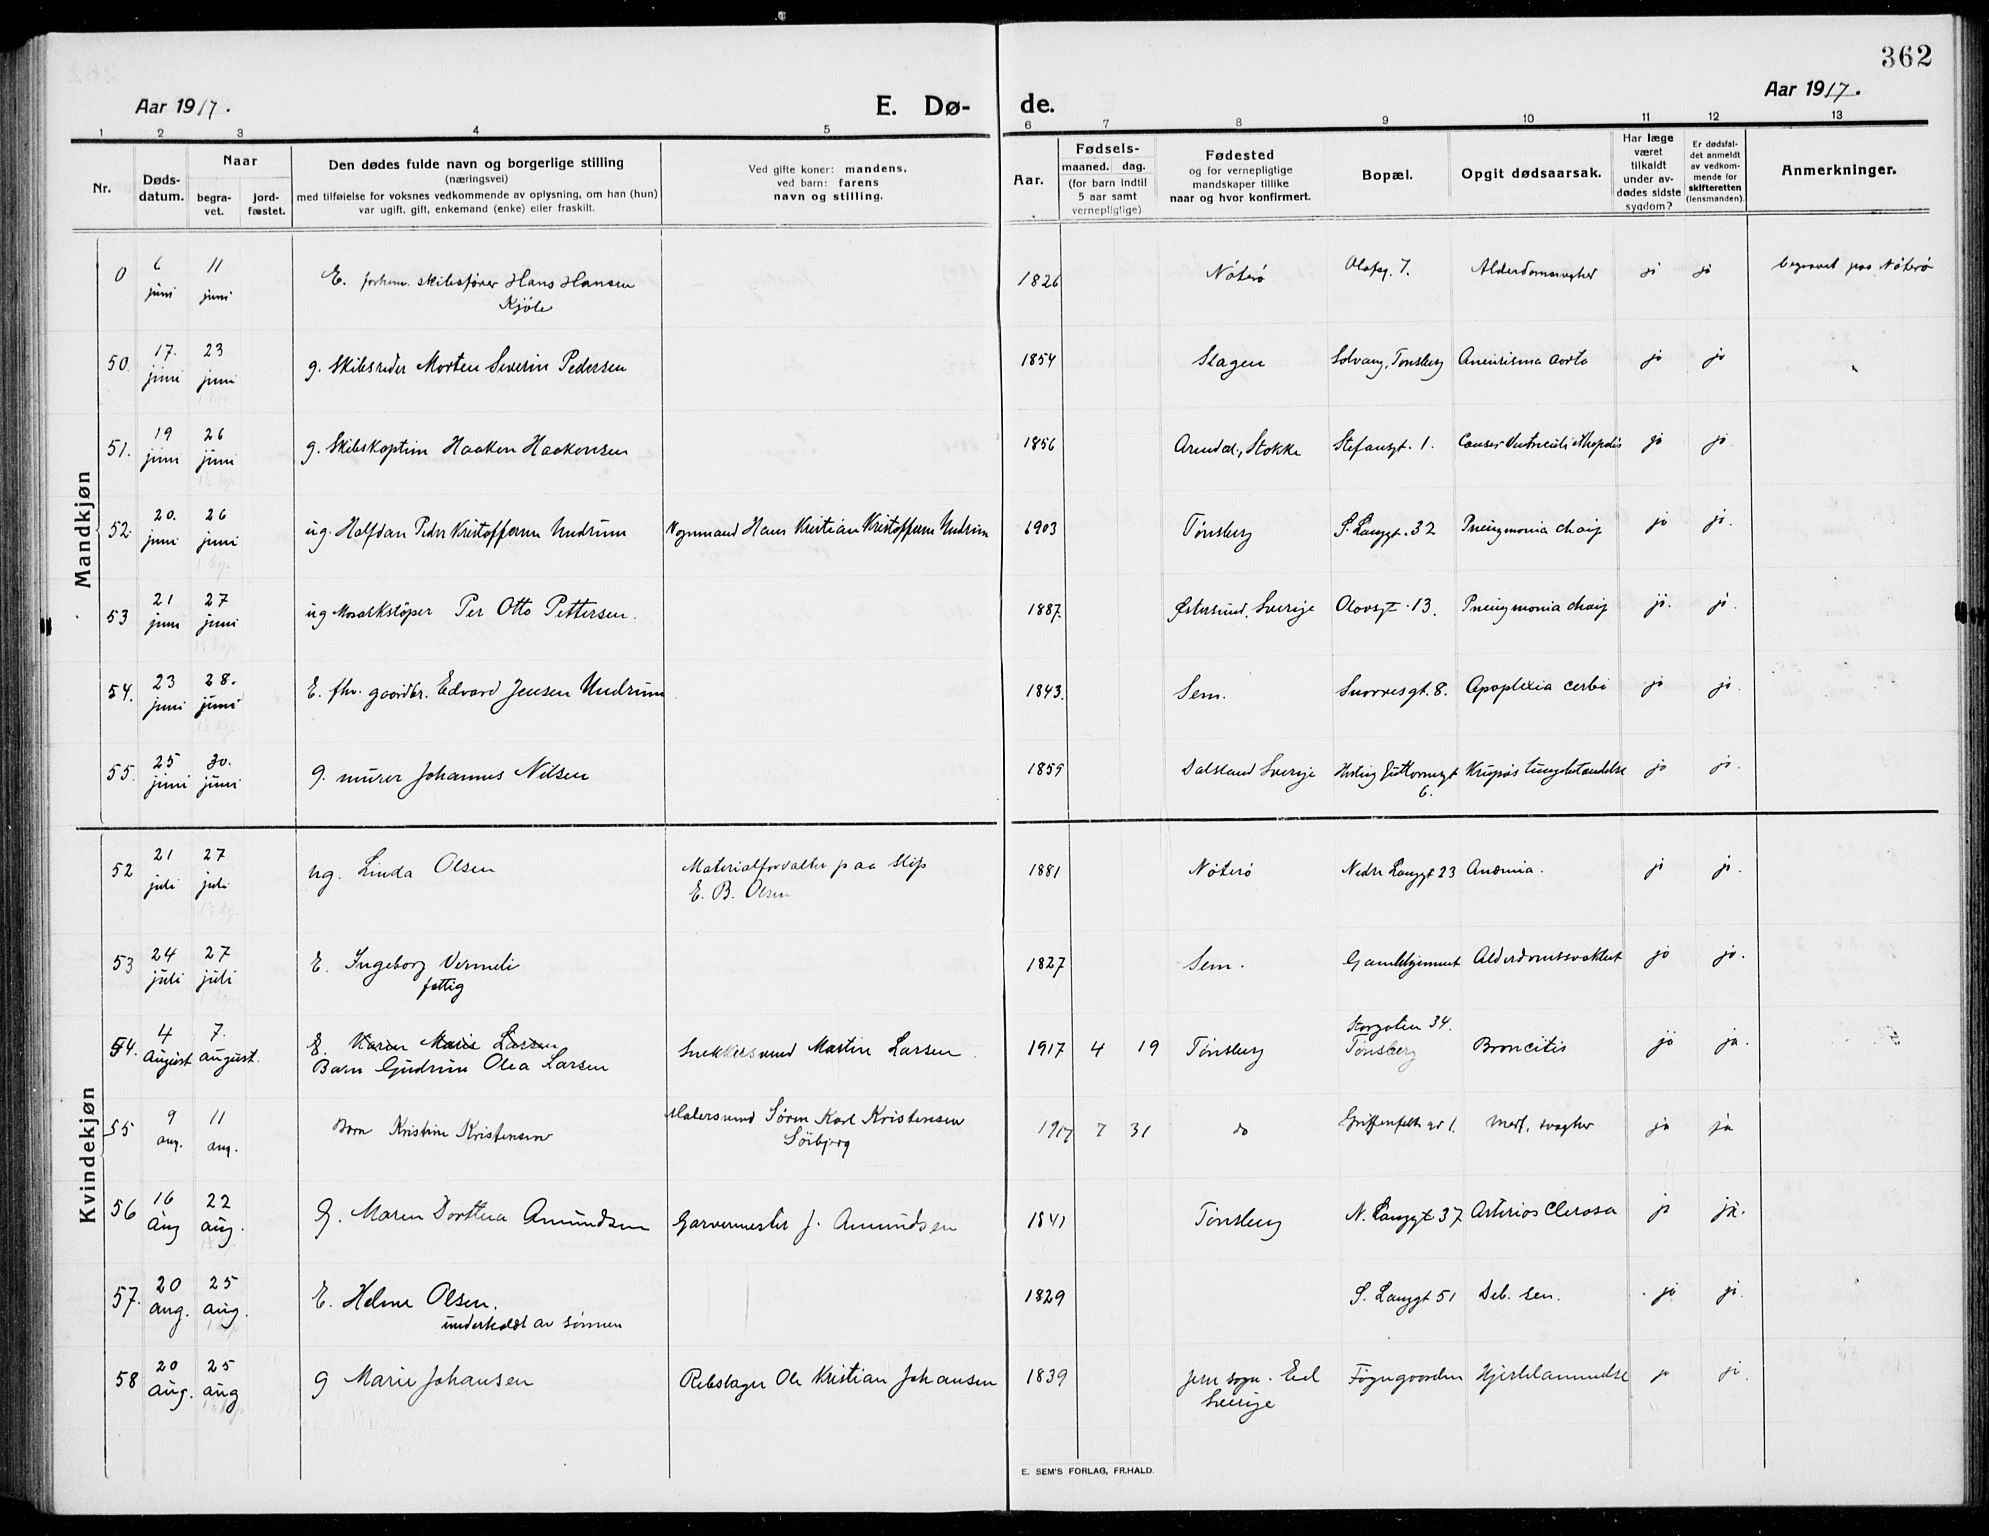 362
Aar 1917.
E. Dø-
de.
Aar 1917.
1 2 3 4 5 6 7 8 9 10 11 12 13
Nr.
Døds-
datum.
Naar
begra-
vet.
jord-
fæstet.
Den dødes fulde navn og borgerlige stilling
(næringsvei)
med tilføielse for voksnes vedkommende av oplysning, om han (hun)
var ugift, gift, enkemand (enke) eller fraskilt.
Ved gifte koner: mandens,
ved barn: farens
navn og stilling.
Aar.
Fødsels-
maaned. dag.
(for barn indtil
5 aar samt
vernepligtige)
Fødested
og for vernepligtige
mandskaper tillike
naar og hvor konfirmert.
Bopæl.
Opgit dødsaarsak.
Har læge
været
tilkaldt
under av-
dødes sidste
sygdom?
Er dødsfal-
det anmeldt
av vedkom-
mende for
skifteretten
(lensmanden).
Anmerkninger.
Mandkjøn
0 6 juni 11 juni E. forhenv. skibsfører Hans Hansen Kjøle 1826 Nøterø Olafsg. 7. Alderdomsvaghet ja ja begravet paa Nøterø
50. 17. juni 23 juni g. Skibsreder Morten Severin Pedersen 1854 Slagen Solvang, Tønsberg Aneurisma aorta ja ja
51. 19 juni 26 juni g. Skibskaptein Haaken Haakensen 1856 Arendal, Stokke Stefansgt. 1. Cancer Ventriculi ja ja
52. 20. juni 26 juni ug. Halfdan Peder Kristoffersen Undrum Vognmand Hans Kristian Kristoffersen Undrum 1903 Tønsberg S. Langgt. 32 Pneugmonia ja ja.
53 21 juni 27 juni ug Per Otto Pettersen. 1887. Østersund, Sverige Olavsgt. 13. Pneugmonia ja. ja.
54. 23 juni 28. juni E. fhv. gaardbr. Edvard Jensen Undrum 1843. Sem. Snorresgt. 8. Apoplexia cerbi ja ja.
55. 25 juni 30. juni g. murer Johannes Nilsen 1859 Dalsland Sverige Guttormsgt 6. Krupøs lungebetændelse ja ja.
Kvindekjøn
52 21 juli 27 juli ug. Linda Olsen Materialforvalter paa Slip E. B. Olsen 1881 Nøterø Nedre Langgt 23 Anæmia. ja ja.
53 24 juli 27 juli E. Ingeborg Vermeli fattig 1827 Sem. Gamlehjemmet Alderdomssvakhet ja ja.
54. 4 August 7. August. E. Karen Marie Larsen
Barn Gudrun Olea Larsen Snekkersvend Martin Larsen 1917 4 19 Tønsberg Storgaten 34. Tønsberg Broncitis ja ja.
55 9 aug. 11 aug. Barn Kristine Kristensen Malersvend Søren Karl Kristensen Söibjerg 1917 7 31 do Griffenfelts gt 1. Medf. svaghet ja ja
56 16 Aug 22 aug. G. Maren Dorthea Amundsen Garvermester J. Amundsen 1841 Tønsberg N. Langgt 37 Arterios Clerosa ja ja.
57. 20 aug. 25 aug. E. Helene Olsen. underholdt av sønnen 1829 S. Langgt 51 Deb. sen. ja ja.
58 20 aug. 25 aug g Marie Johansen Rebslager Ole Kristian Johansen 1839 sogn. Eid Sverige Føyngaarden Hjertelammelse ja ja.
E. SEM'S FORLAG, FR.HALD.